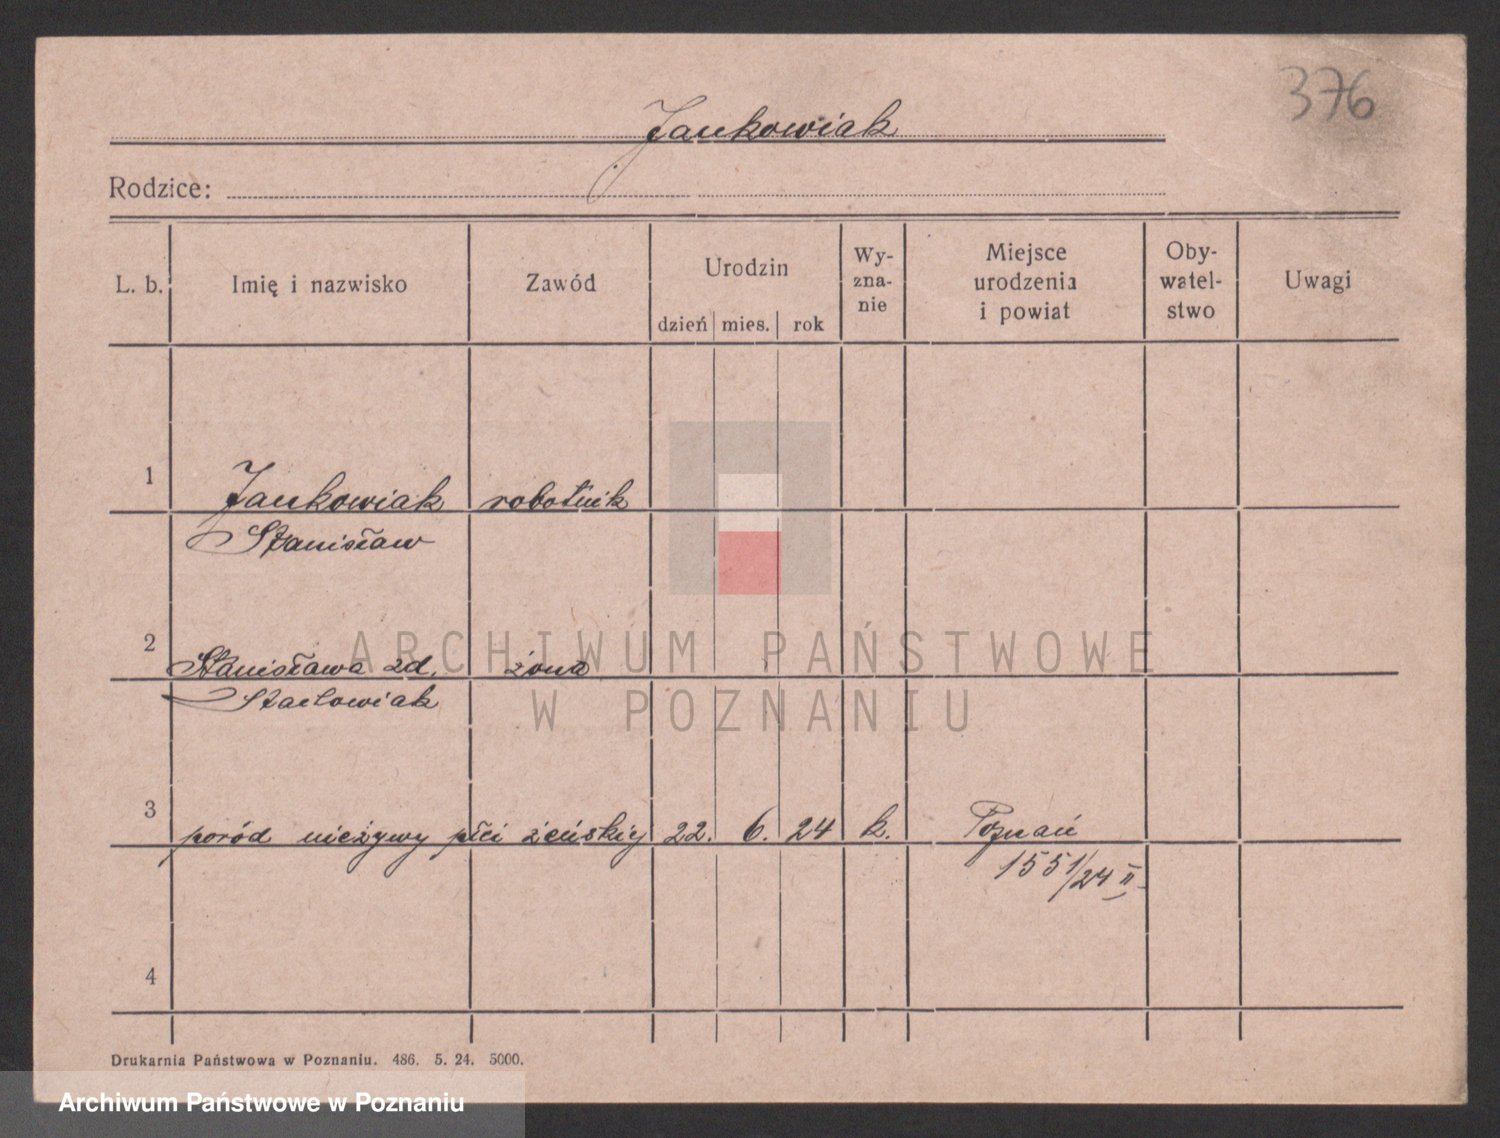 376
Jankowiak
Rodzice:
L. b.
Imię i nazwisko
Zawód
Urodzin
dzień mies. rok
Wy-
zna-
nie
Miejsce
urodzenia
i powiat
Oby-
watel-
stwo
Uwagi
1 Jankowiak robotnik
Stanisław
2 Stanisława zd. żona
3 poród nieżywy płci żeńskiej 22. 6. 24 k. Poznań
1551/24 II
4
ARCHIWUM PAŃSTWOWE
W POZNANIU
Drukarnia Państwowa w Poznaniu. 486. 5. 24. 5000.
Archiwum Państwowe w Poznaniu